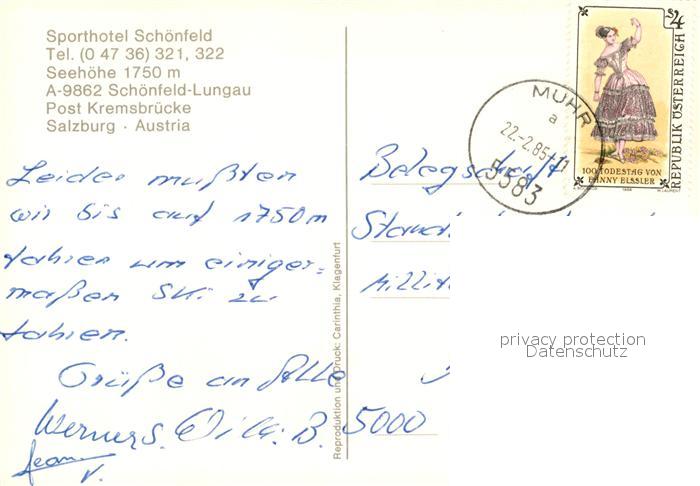 Sporthotel Schönfeld
Tel. (0 47 36) 321, 322
Seehöhe 1750 m
A-9862 Schönfeld-Lungau
Post Kremsbrücke
Salzburg · Austria
Leider mußten
wir bis auf 1750m
fahren um einiger=
maßen Ski zu
fahren.
Grüße an Alle
Werner S.
Reproduktion und Druck: Carinthia, Klagenfurt
S 4
REPUBLIK ÖSTERREICH
100. TODESTAG VON
FANNY ELSSLER
1984
MUHR
a
22.-2.85-11
5583
Belegschaft
5000
privacy protection
Datenschutz